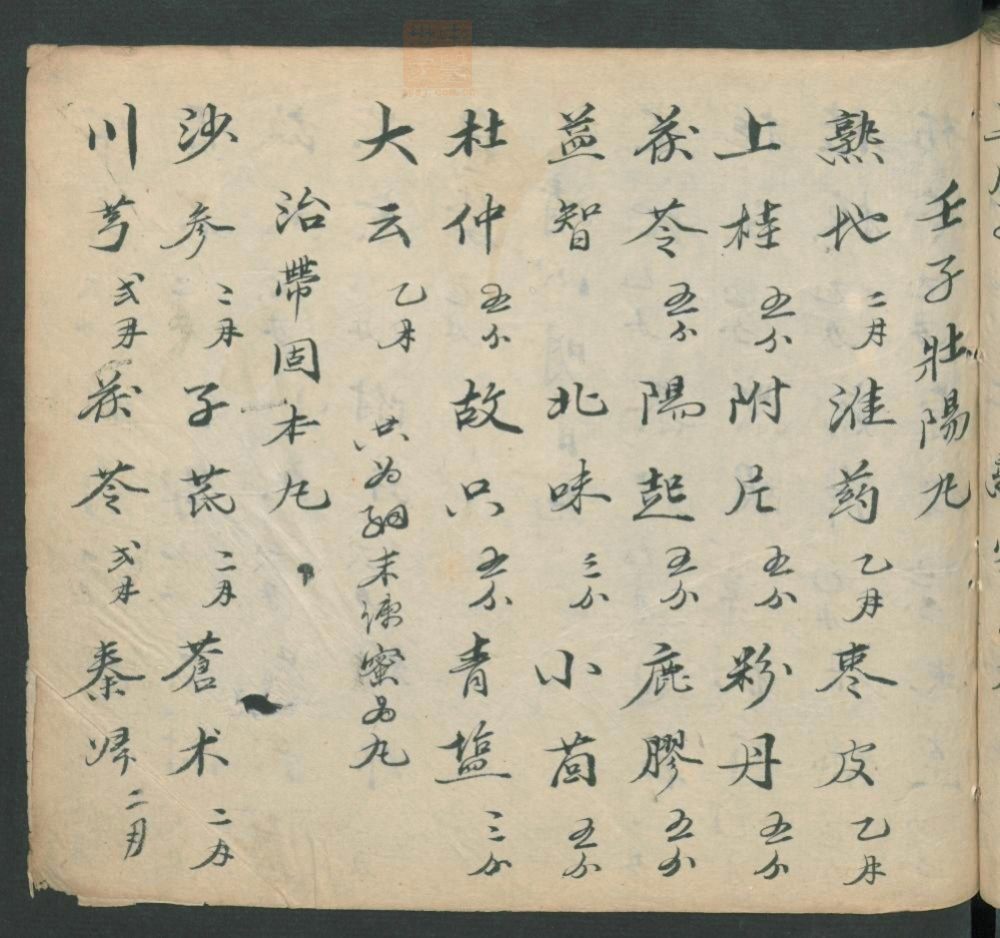 壬子壮陽丸
熟地 二月 淮药 乙月 枣皮 乙月
上桂 五分 附片 五分 粉丹 五分
茯苓 五分 陽起 五分 鹿膠 五分
益智 北味 三分 小茴 五分
杜仲 五分 故只 五分 青塩 三分
大云 乙月 共为細末煉蜜为丸
治帶固本丸
沙参 二月 子芪 二月 蒼术 二月
川芎 弍月 茯苓 弍月 秦歸 二月